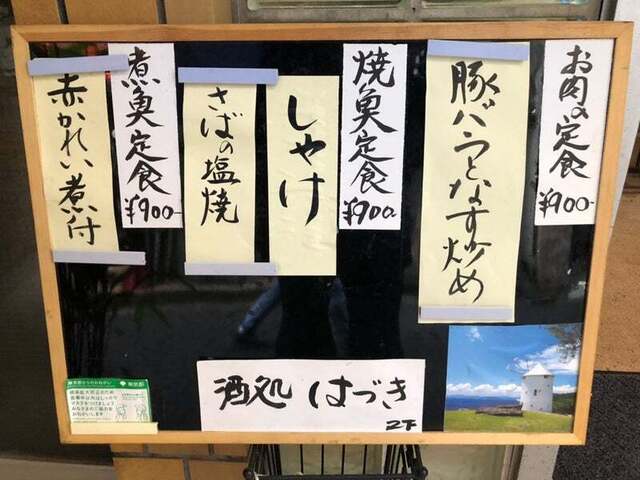 お肉の定食
¥900-
豚バラとなす炒め
焼魚定食
¥900
しゃけ
さばの塩焼
煮魚定食
¥900-
赤かれい煮付
酒処 はづき
2F